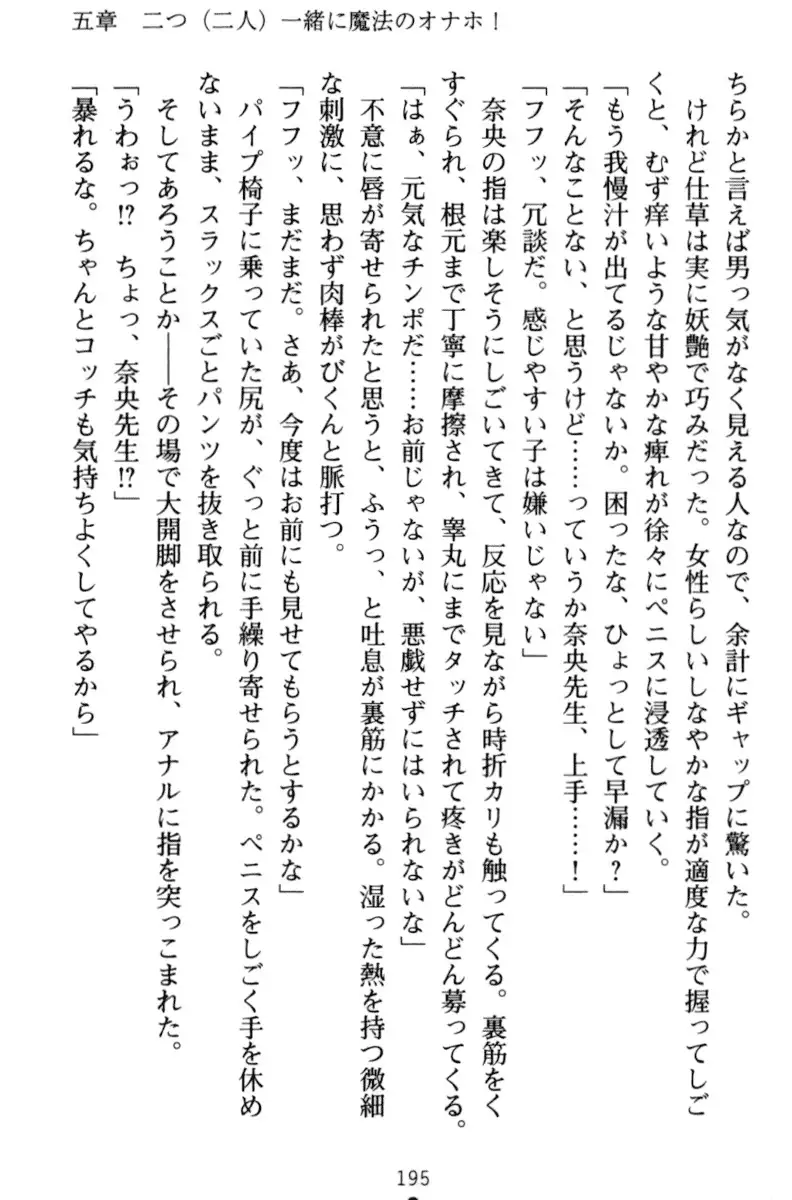 五章　二つ（二人）一緒に魔法のオナホ！
ちらかと言えば男っ気がなく見える人なので、余計にギャップに驚いた。
けれど仕草は実に妖艶で巧みだった。女性らしいしなやかな指が適度な力で握ってしご
くと、むず痒いような甘やかな痺れが徐々にペニスに浸透していく。
「もう我慢汁が出てるじゃないか。困ったな、ひょっとして早漏か？」
「そんなことない、と思うけど……っていうか奈央先生、上手……！」
「フフッ、冗談だ。感じやすい子は嫌いじゃない」
奈央の指は楽しそうにしごいてきて、反応を見ながら時折カリも触ってくる。裏筋をく
すぐられ、根元まで丁寧に摩擦され、睾丸にまでタッチされて疼きがどんどん募ってくる。
「はぁ、元気なチンポだ……お前じゃないが、悪戯せずにはいられないな」
不意に唇が寄せられたと思うと、ふうっ、と吐息が裏筋にかかる。湿った熱を持つ微細
な刺激に、思わず肉棒がびくんと脈打つ。
「フフッ、まだまだ。さあ、今度はお前にも見せてもらうとするかな」
パイプ椅子に乗っていた尻が、ぐっと前に手繰り寄せられた。ペニスをしごく手を休め
ないまま、スラックスごとパンツを抜き取られる。
そしてあろうことか――その場で大開脚をさせられ、アナルに指を突っこまれた。
「うわぉっ!?　ちょっ、奈央先生!?」
「暴れるな。ちゃんとコッチも気持ちよくしてやるから」
195